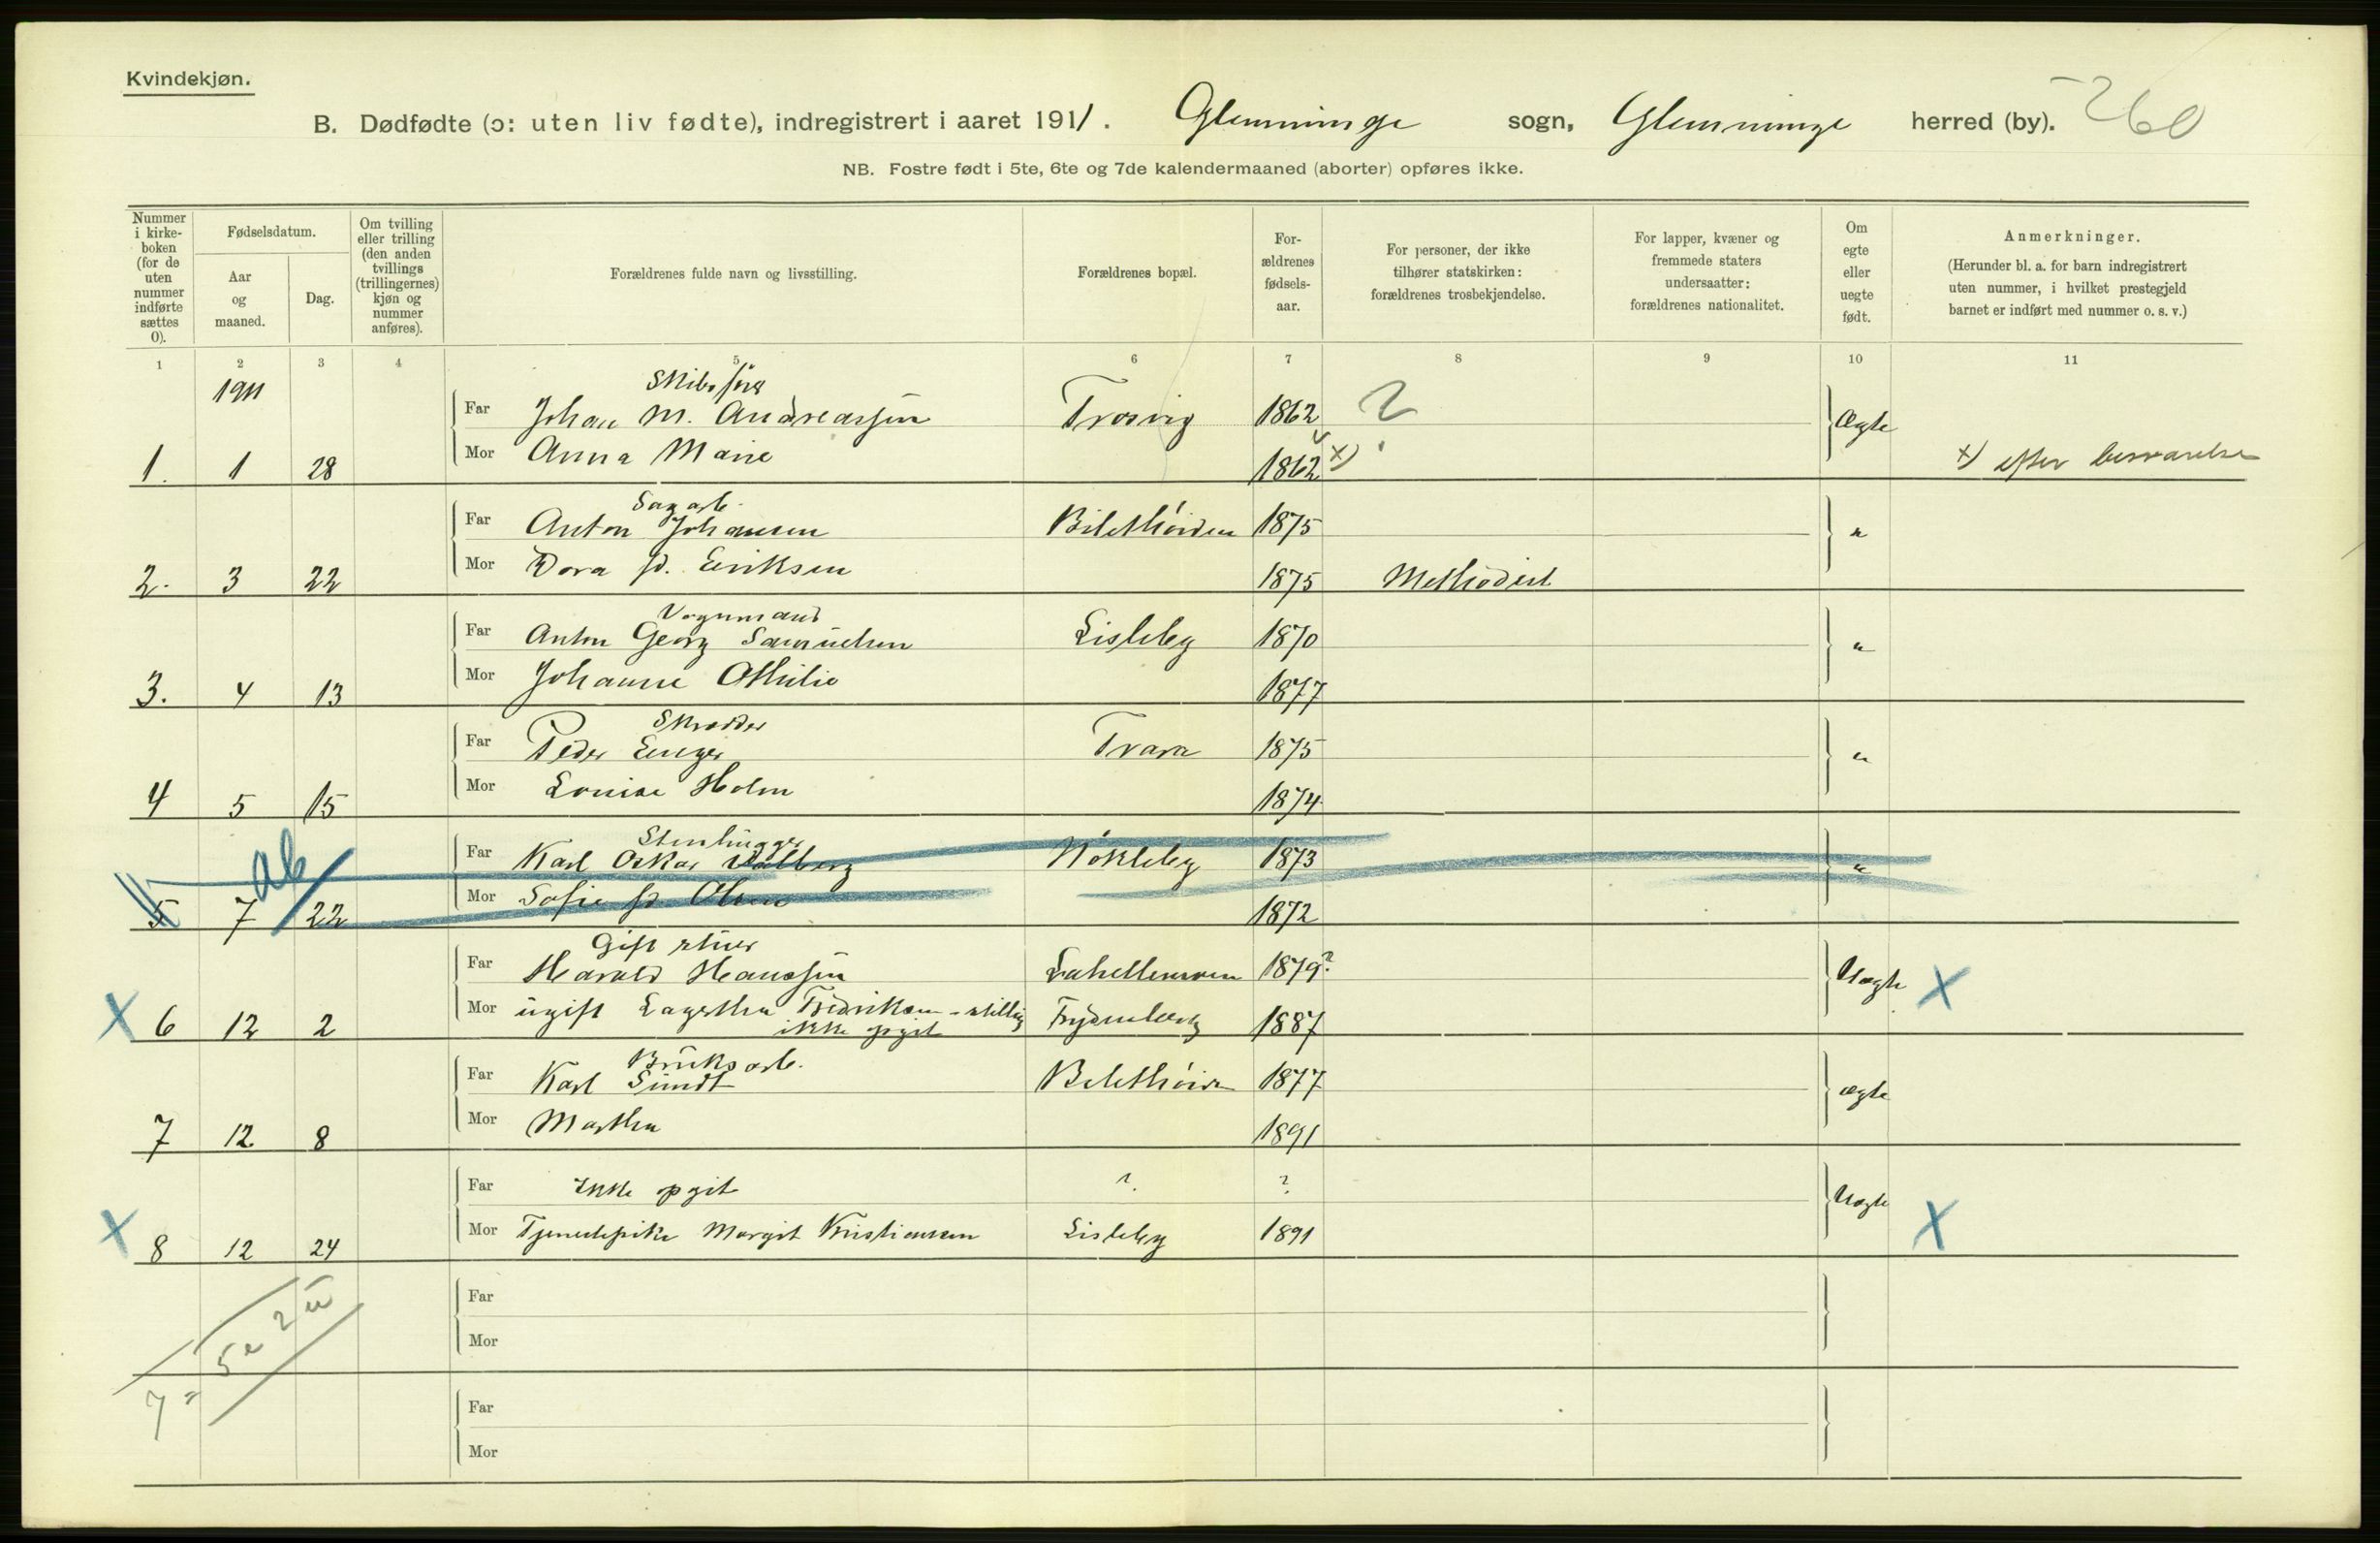 Kvindekjøn.
B. Dødfødte (ɔ: uten liv fødte), indregistrert i aaret 1911. Glemminge sogn, Glemminge herred (by). 260
NB. Fostre født i 5te, 6te og 7de kalendermaaned (aborter) opføres ikke.
Nummer i kirkeboken (for de uten nummer indførte sættes 0).
Fødselsdatum.
Aar og maaned.
Dag.
Om tvilling eller trilling (den anden tvillings (trillingernes) kjøn og nummer anføres).
Forældrenes fulde navn og livsstilling.
Forældrenes bopæl.
For-ældrenes fødsels-aar.
For personer, der ikke tilhører statskirken: forældrenes trosbekjendelse.
For lapper, kvæner og fremmede staters undersaatter: forældrenes nationalitet.
Om egte eller uegte født.
Anmerkninger.
(Herunder bl. a. for barn indregistrert uten nummer, i hvilket prestegjeld barnet er indført med nummer o. s. v.)
1 2 3 4 5 6 7 8 9 10 11
1911
Skibsfører
Far Johan M. Andreassen Trosvig 1862 Ægte
Mor Anna Marie 1862 x) x) efter besvarelse
1. 1 28
Sagarb.
Far Anton Johansen 1875 "
Mor Dora f. Eriksen 1875 Methodist
2. 3 22
Vognmand
Far Anton Georg Samuelsen Lisleby 1870 "
Mor Johanne Othilie 1877
3. 4 13
Skrædder
Far Peder Enger Trara 1875 "
Mor Lovise Holm 1874
4 5 15
ab
Stenhugger
Far Karl Oskar Nøkleby 1873 "
Mor Sofie f. Olsen 1872
5 7 22
Gift stuer
Far Harald Hanssen 1879? Uægte X
Mor ugift Lagertha Fredriksen - stilling Frydenberg 1887
ikke opgit
X 6 12 2
Bruksarb.
Far Karl Sundt 1877 ægte
Mor Martha 1891
7 12 8
Far Ikke opgit ? ? Uægte
Mor Tjenestepike Margit Kristiansen Lisleby 1891 X
X 8 12 24
Far
Mor
5 e 2 u
7
Far
Mor